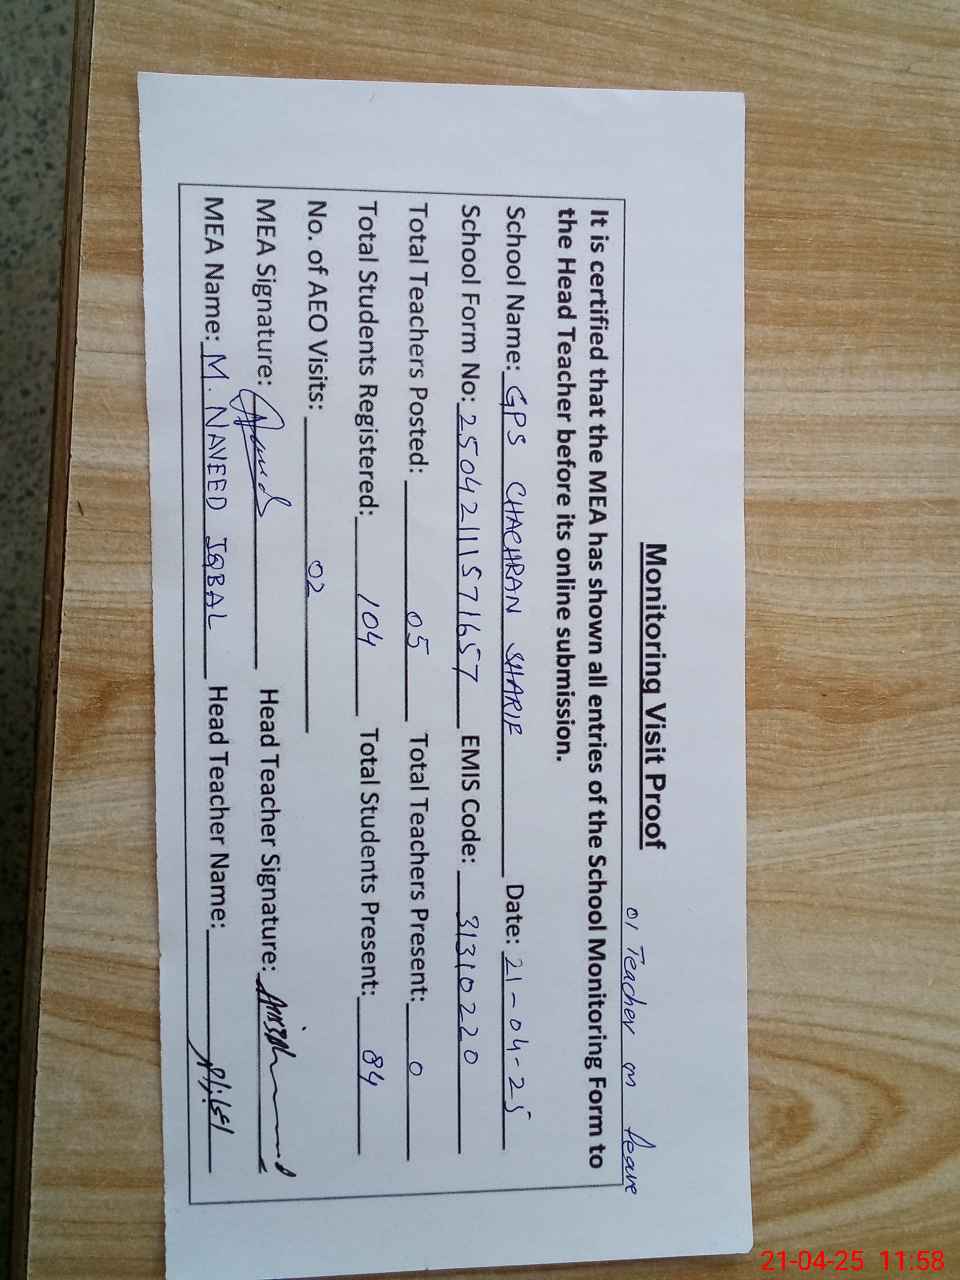 Monitoring Visit Proof
01 Teacher on leave
It is certified that the MEA has shown all entries of the School Monitoring Form to
the Head Teacher before its online submission.
School Name: GPS CHACHRAN SHARIF Date: 21-04-25
School Form No: 25042111571657 EMIS Code: 31310220
Total Teachers Posted: 05 Total Teachers Present: 0
Total Students Registered: 104 Total Students Present: 84
No. of AEO Visits: 02
MEA Signature: Head Teacher Signature:
MEA Name: M. NAVEED IQBAL Head Teacher Name:
21-04-25 11:58